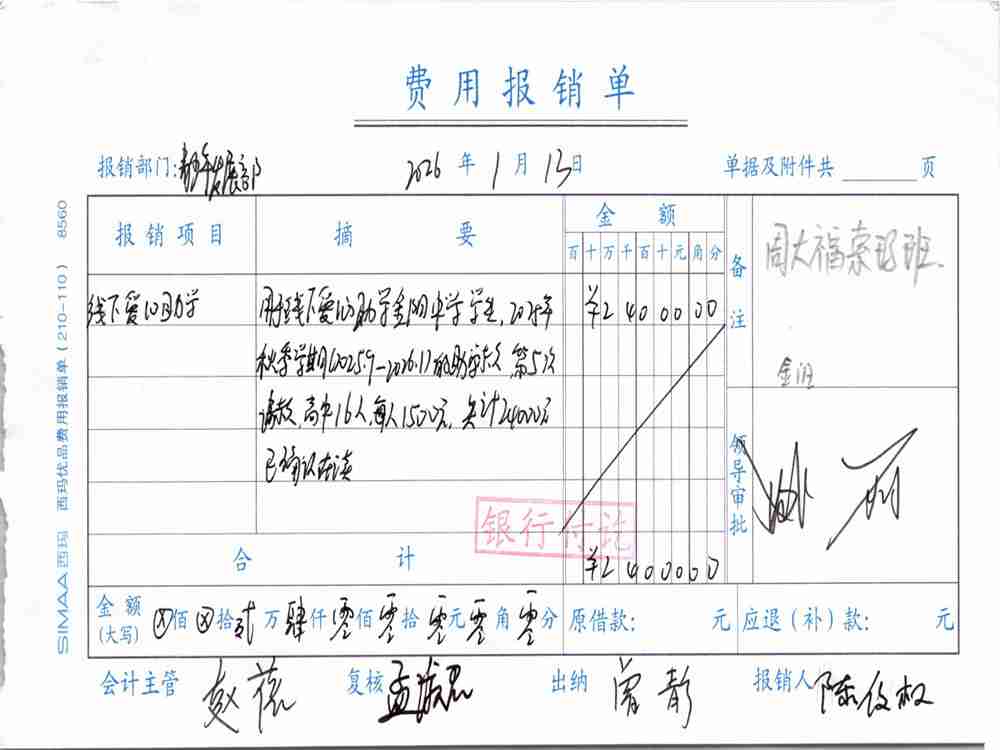 费用报销单
报销部门: 青少年发展部 2026年1月13日 单据及附件共 页
报销项目 摘要 金额 备注
百十万千百十元角分
周大福索玛班.
金阳
线下爱心助学 用于线下爱心助学金阳中学学生,2025年 ¥2400000
秋季学期(2025.9-2026.1)的助学款,第5次
请款,高中16人,每人1500元,共计24000元
已确认在读
领导审批
银行付讫
合计 ¥2400000
金额(大写) ⊗佰⊗拾贰万肆仟零佰零拾零元零角零分 原借款: 元 应退(补)款: 元
会计主管 复核 出纳 曾静 报销人
SIMAA西玛 西玛优品费用报销单(210-110) 8560